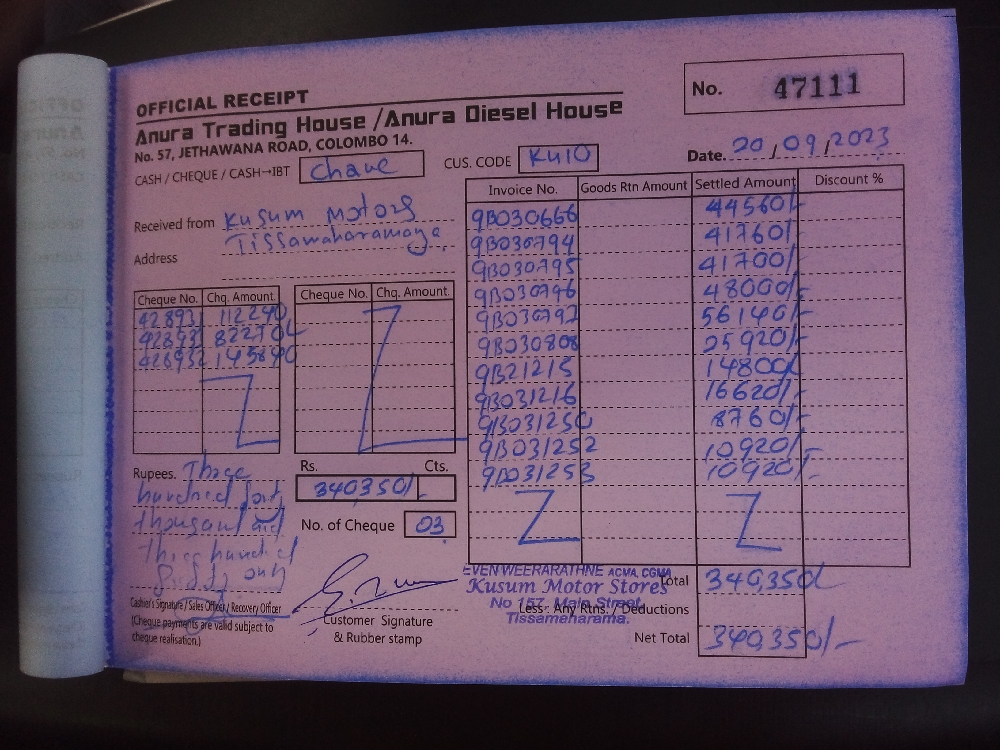 OFFICIAL RECEIPT
No. 47111
Anura Trading House / Anura Diesel House
No. 57, JETHAWANA ROAD, COLOMBO 14.
Date. 20/09/2023
CASH / CHEQUE / CASH→IBT
CUS. CODE KU10
Received from Kusum Motors
Tissamaharamaya
Address
Invoice No. Goods Rtn Amount Settled Amount Discount %
9B030666 44560/-
9B030794 41760/-
9B030795 41700/-
9B030796 48000/-
9B030797 56140/-
9B030808 25920/-
9B21215 14800/-
9B031216 16620/-
9B031250 8760/-
9B031252 10920/-
9B031253 10920/-
Cheque No. Chq. Amount Cheque No. Chq. Amount.
428931 112240
428931 82270/-
428932 145840
Rupees. Three
hundred forty
thousand and
three hundred
fifty only
Rs. Cts.
340,350/-
No. of Cheque 03
Cashier's Signature / Sales Officer / Recovery Officer
(Cheque payments are valid subject to
cheque realisation.)
Customer Signature
& Rubber stamp
EVEN WEERARATHNE ACMA, CGMA
Kusum Motor Stores
No 157, Main Street,
Tissamaharama.
Total 340,350/-
Less : Any Rtns. / Deductions
Net Total 340,350/-